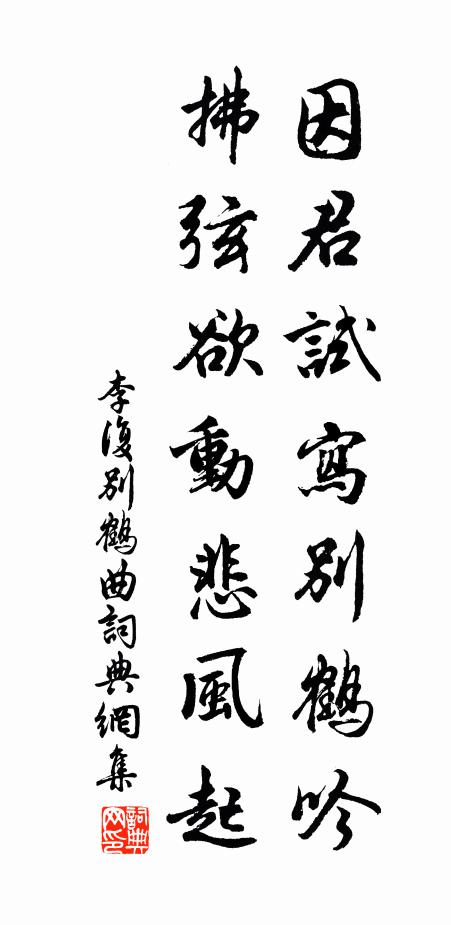 因君試寫別鶴吟
拂弦欲動悲風起
李復別鶴曲詞典網集
詞典网印